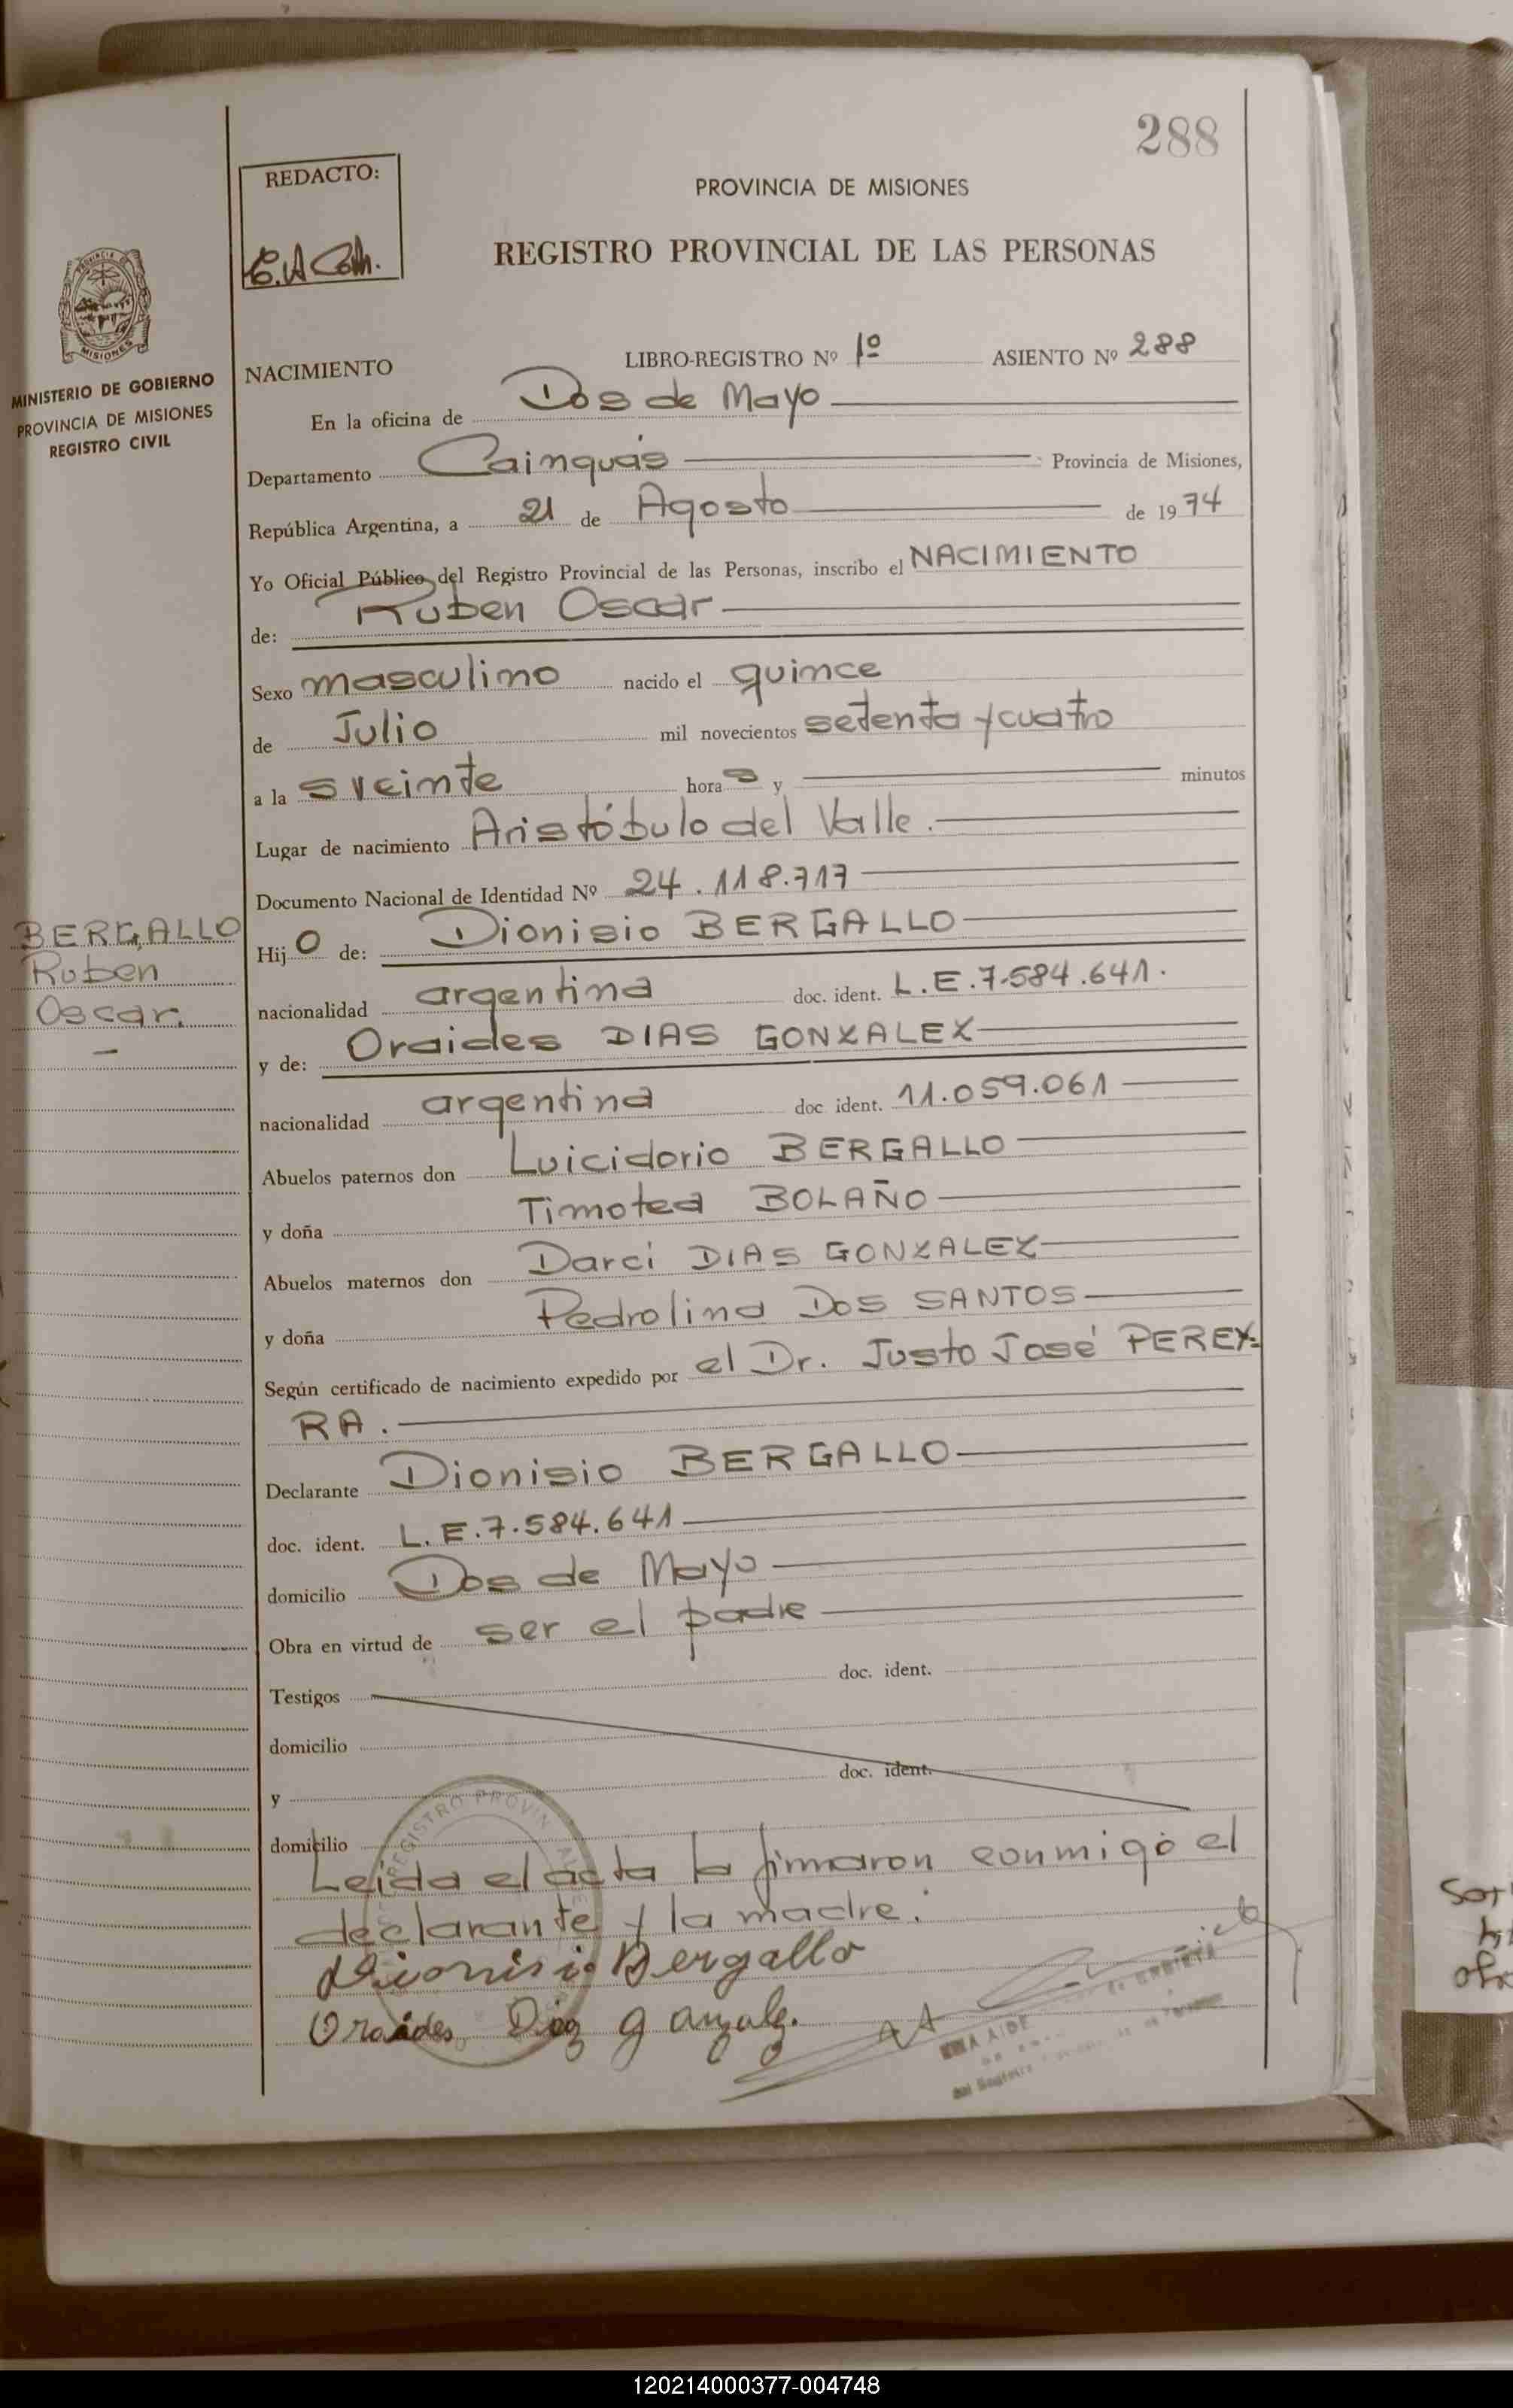 288
REDACTO:
PROVINCIA DE MISIONES
REGISTRO PROVINCIAL DE LAS PERSONAS
MISIONES
MINISTERIO DE GOBIERNO
PROVINCIA DE MISIONES
REGISTRO CIVIL
NACIMIENTO LIBRO-REGISTRO Nº 1º ASIENTO Nº 288
En la oficina de Dos de Mayo
Departamento Cainguás Provincia de Misiones,
República Argentina, a 21 de Agosto de 1974
Yo Oficial Público del Registro Provincial de las Personas, inscribo el NACIMIENTO
de: Ruben Oscar
Sexo masculino nacido el quince
de Julio mil novecientos setenta y cuatro
a la s veinte hora s y minutos
Lugar de nacimiento Aristóbulo del Valle.
Documento Nacional de Identidad Nº 24.118.717
BERGALLO
Ruben
Oscar.
Hijo de: Dionisio BERGALLO
nacionalidad argentina doc. ident. L.E.7.584.641.
y de: Oraides DIAS GONZALEZ
nacionalidad argentina doc ident. 11.059.061
Abuelos paternos don Luicidorio BERGALLO
y doña Timotea BOLAÑO
Abuelos maternos don Darci DIAS GONZALEZ
y doña Pedrolina DOS SANTOS
Según certificado de nacimiento expedido por el Dr. Justo José PEREY=
RA.
Declarante Dionisio BERGALLO
doc. ident. L.E.7.584.641
domicilio Dos de Mayo
Obra en virtud de ser el padre
Testigos doc. ident.
domicilio
y doc. ident.
domicilio
Leida el acta la firmaron conmigo el
declarante y la madre.
Dionisio Bergallo
Oraides Diaz
120214000377-004748